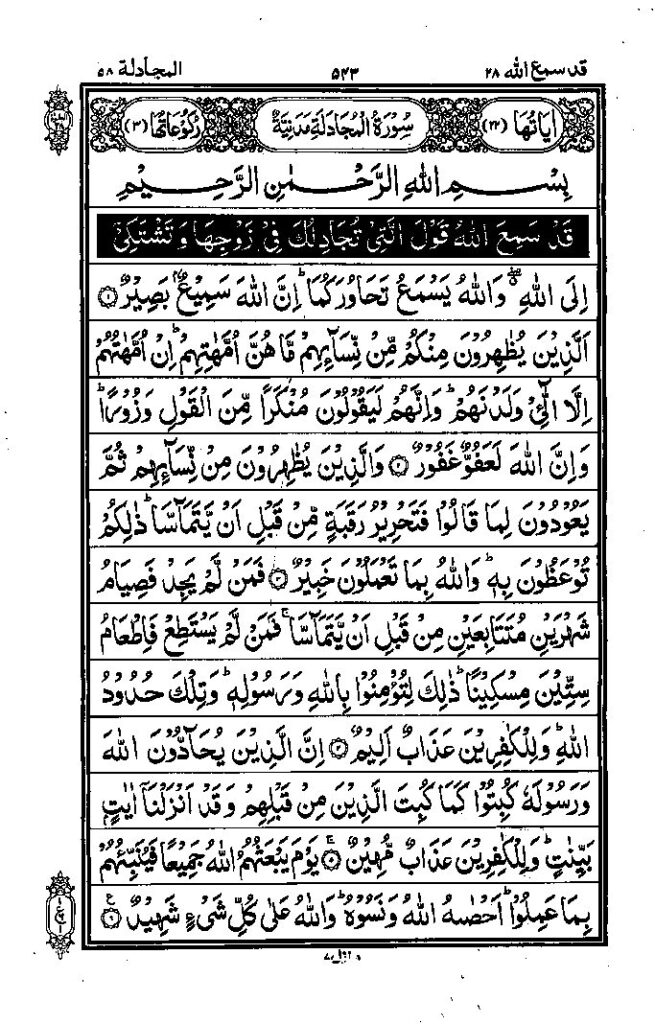 قد سمع الله ٢٨ ٥٤٣ المجادلة ٥٨
اٰيَاتُهَا (٢٢) سُوْرَةُ الْمُجَادَلَةِ مَدَنِيَّةٌ رُكُوْعَاتُهَا (٣)
بِسْمِ اللهِ الرَّحْمٰنِ الرَّحِيْمِ
قَدْ سَمِعَ اللهُ قَوْلَ الَّتِيْ تُجَادِلُكَ فِيْ زَوْجِهَا وَتَشْتَكِيْۤ
اِلَى اللهِ ۖ وَاللهُ يَسْمَعُ تَحَاوُرَكُمَا ؕ اِنَّ اللهَ سَمِيْعٌۢ بَصِيْرٌ ۝۱
اَلَّذِيْنَ يُظٰهِرُوْنَ مِنْكُمْ مِّنْ نِّسَآئِهِمْ مَّا هُنَّ اُمَّهٰتِهِمْ ؕ اِنْ اُمَّهٰتُهُمْ
اِلَّا الّٰٓـِٔيْ وَلَدْنَهُمْ ؕ وَاِنَّهُمْ لَيَقُوْلُوْنَ مُنْكَرًا مِّنَ الْقَوْلِ وَزُوْرًا ؕ
وَاِنَّ اللهَ لَعَفُوٌّ غَفُوْرٌ ۝۲ وَالَّذِيْنَ يُظٰهِرُوْنَ مِنْ نِّسَآئِهِمْ ثُمَّ
يَعُوْدُوْنَ لِمَا قَالُوْا فَتَحْرِيْرُ رَقَبَةٍ مِّنْ قَبْلِ اَنْ يَّتَمَآسَّا ؕ ذٰلِكُمْ
تُوْعَظُوْنَ بِهٖ ؕ وَاللهُ بِمَا تَعْمَلُوْنَ خَبِيْرٌ ۝۳ فَمَنْ لَّمْ يَجِدْ فَصِيَامُ
شَهْرَيْنِ مُتَتَابِعَيْنِ مِنْ قَبْلِ اَنْ يَّتَمَآسَّا ۚ فَمَنْ لَّمْ يَسْتَطِعْ فَاِطْعَامُ
سِتِّيْنَ مِسْكِيْنًا ؕ ذٰلِكَ لِتُؤْمِنُوْا بِاللهِ وَرَسُوْلِهٖ ؕ وَتِلْكَ حُدُوْدُ
اللهِ ؕ وَلِلْكٰفِرِيْنَ عَذَابٌ اَلِيْمٌ ۝۴ اِنَّ الَّذِيْنَ يُحَآدُّوْنَ اللهَ
وَرَسُوْلَهٗ كُبِتُوْا كَمَا كُبِتَ الَّذِيْنَ مِنْ قَبْلِهِمْ وَقَدْ اَنْزَلْنَاۤ اٰيٰتٍۭ
بَيِّنٰتٍ ؕ وَلِلْكٰفِرِيْنَ عَذَابٌ مُّهِيْنٌ ۝۵ ۚ يَوْمَ يَبْعَثُهُمُ اللهُ جَمِيْعًا فَيُنَبِّئُهُمْ
بِمَا عَمِلُوْا ؕ اَحْصٰىهُ اللهُ وَنَسُوْهُ ؕ وَاللهُ عَلٰى كُلِّ شَيْءٍ شَهِيْدٌ ۝۶ ع